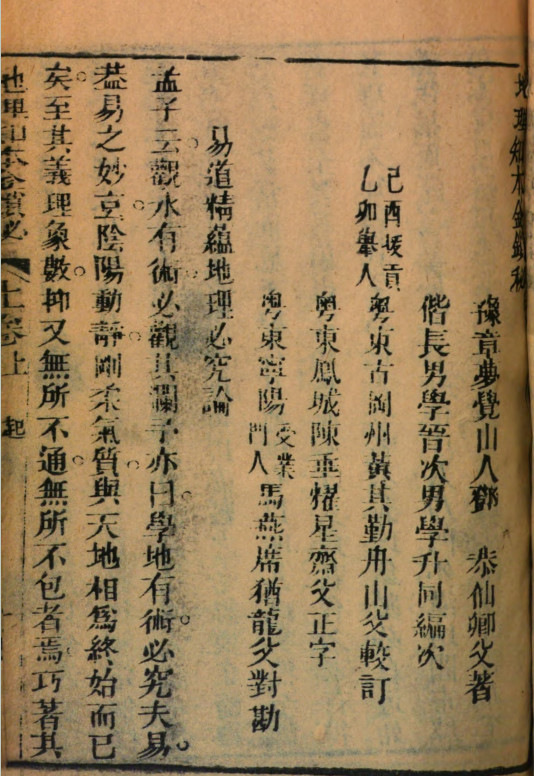 地理知本金鎖秘
豫章夢覺山人鄧　恭仙卿父著
偕長男學晉次男學升同編次
己酉拔貢
乙卯舉人
粵東古岡州黃其勤舟山父較訂
粵東鳳城陳垂燿星齋父正字
粵東寧陽
受業
門人
馬燕席猶龍父對勘
易道精蘊地理必究論
孟子云觀水有術必觀其瀾予亦曰學地有術必究夫易
葢易之妙亶陰陽動靜剛柔氣質與天地相爲終始而已
矣至其義理象數抑又無所不通無所不包者焉巧著其
地理知本金鎖秘　上卷上　起